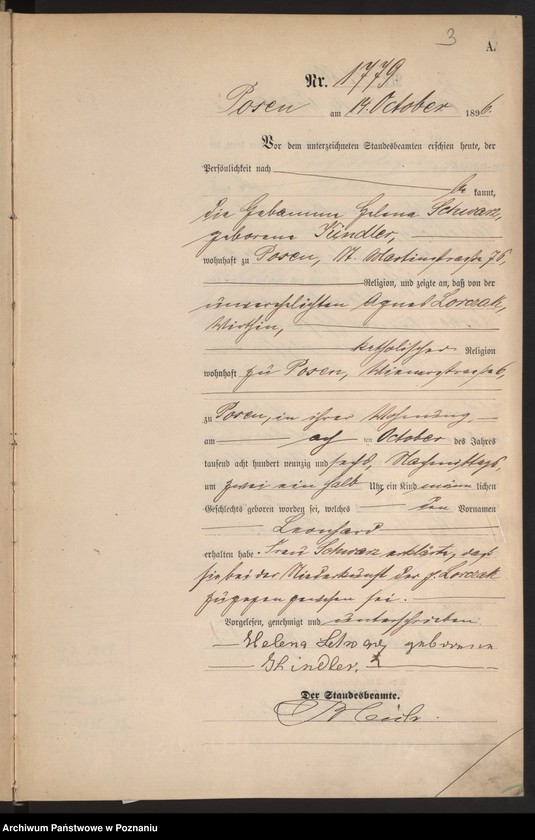 3
A.
Nr. 1779
Posen am 14. October 1896.
Vor dem unterzeichneten Standesbeamten erschien heute, der
Persönlichkeit nach
be kannt,
die Hebamme Helena Schwarz,
geborene Kindler,
wohnhaft zu Posen, St. Martinstraße 76,
Religion, und zeigte an, daß von der
unverehelichten Agnes Lorczak,
Wirthin,
katholischer Religion
wohnhaft zu Posen, Wienerstrasse 6,
zu Posen, in ihrer Wohnung,
am ten October des Jahres
tausend acht hundert neunzig und sechs, Nachmittags,
um zwei ein halb Uhr, ein Kind männ lichen
Geschlechts geboren worden sei, welches den Vornamen
Leonhard
erhalten habe. Frau Schwarz erklärte, daß
sie bei der Niederkunft der p. Lorczak
zugegen gewesen sei.
Vorgelesen, genehmigt und unterschrieben
Helena geborene
Der Standesbeamte.
Archiwum Państwowe w Poznaniu